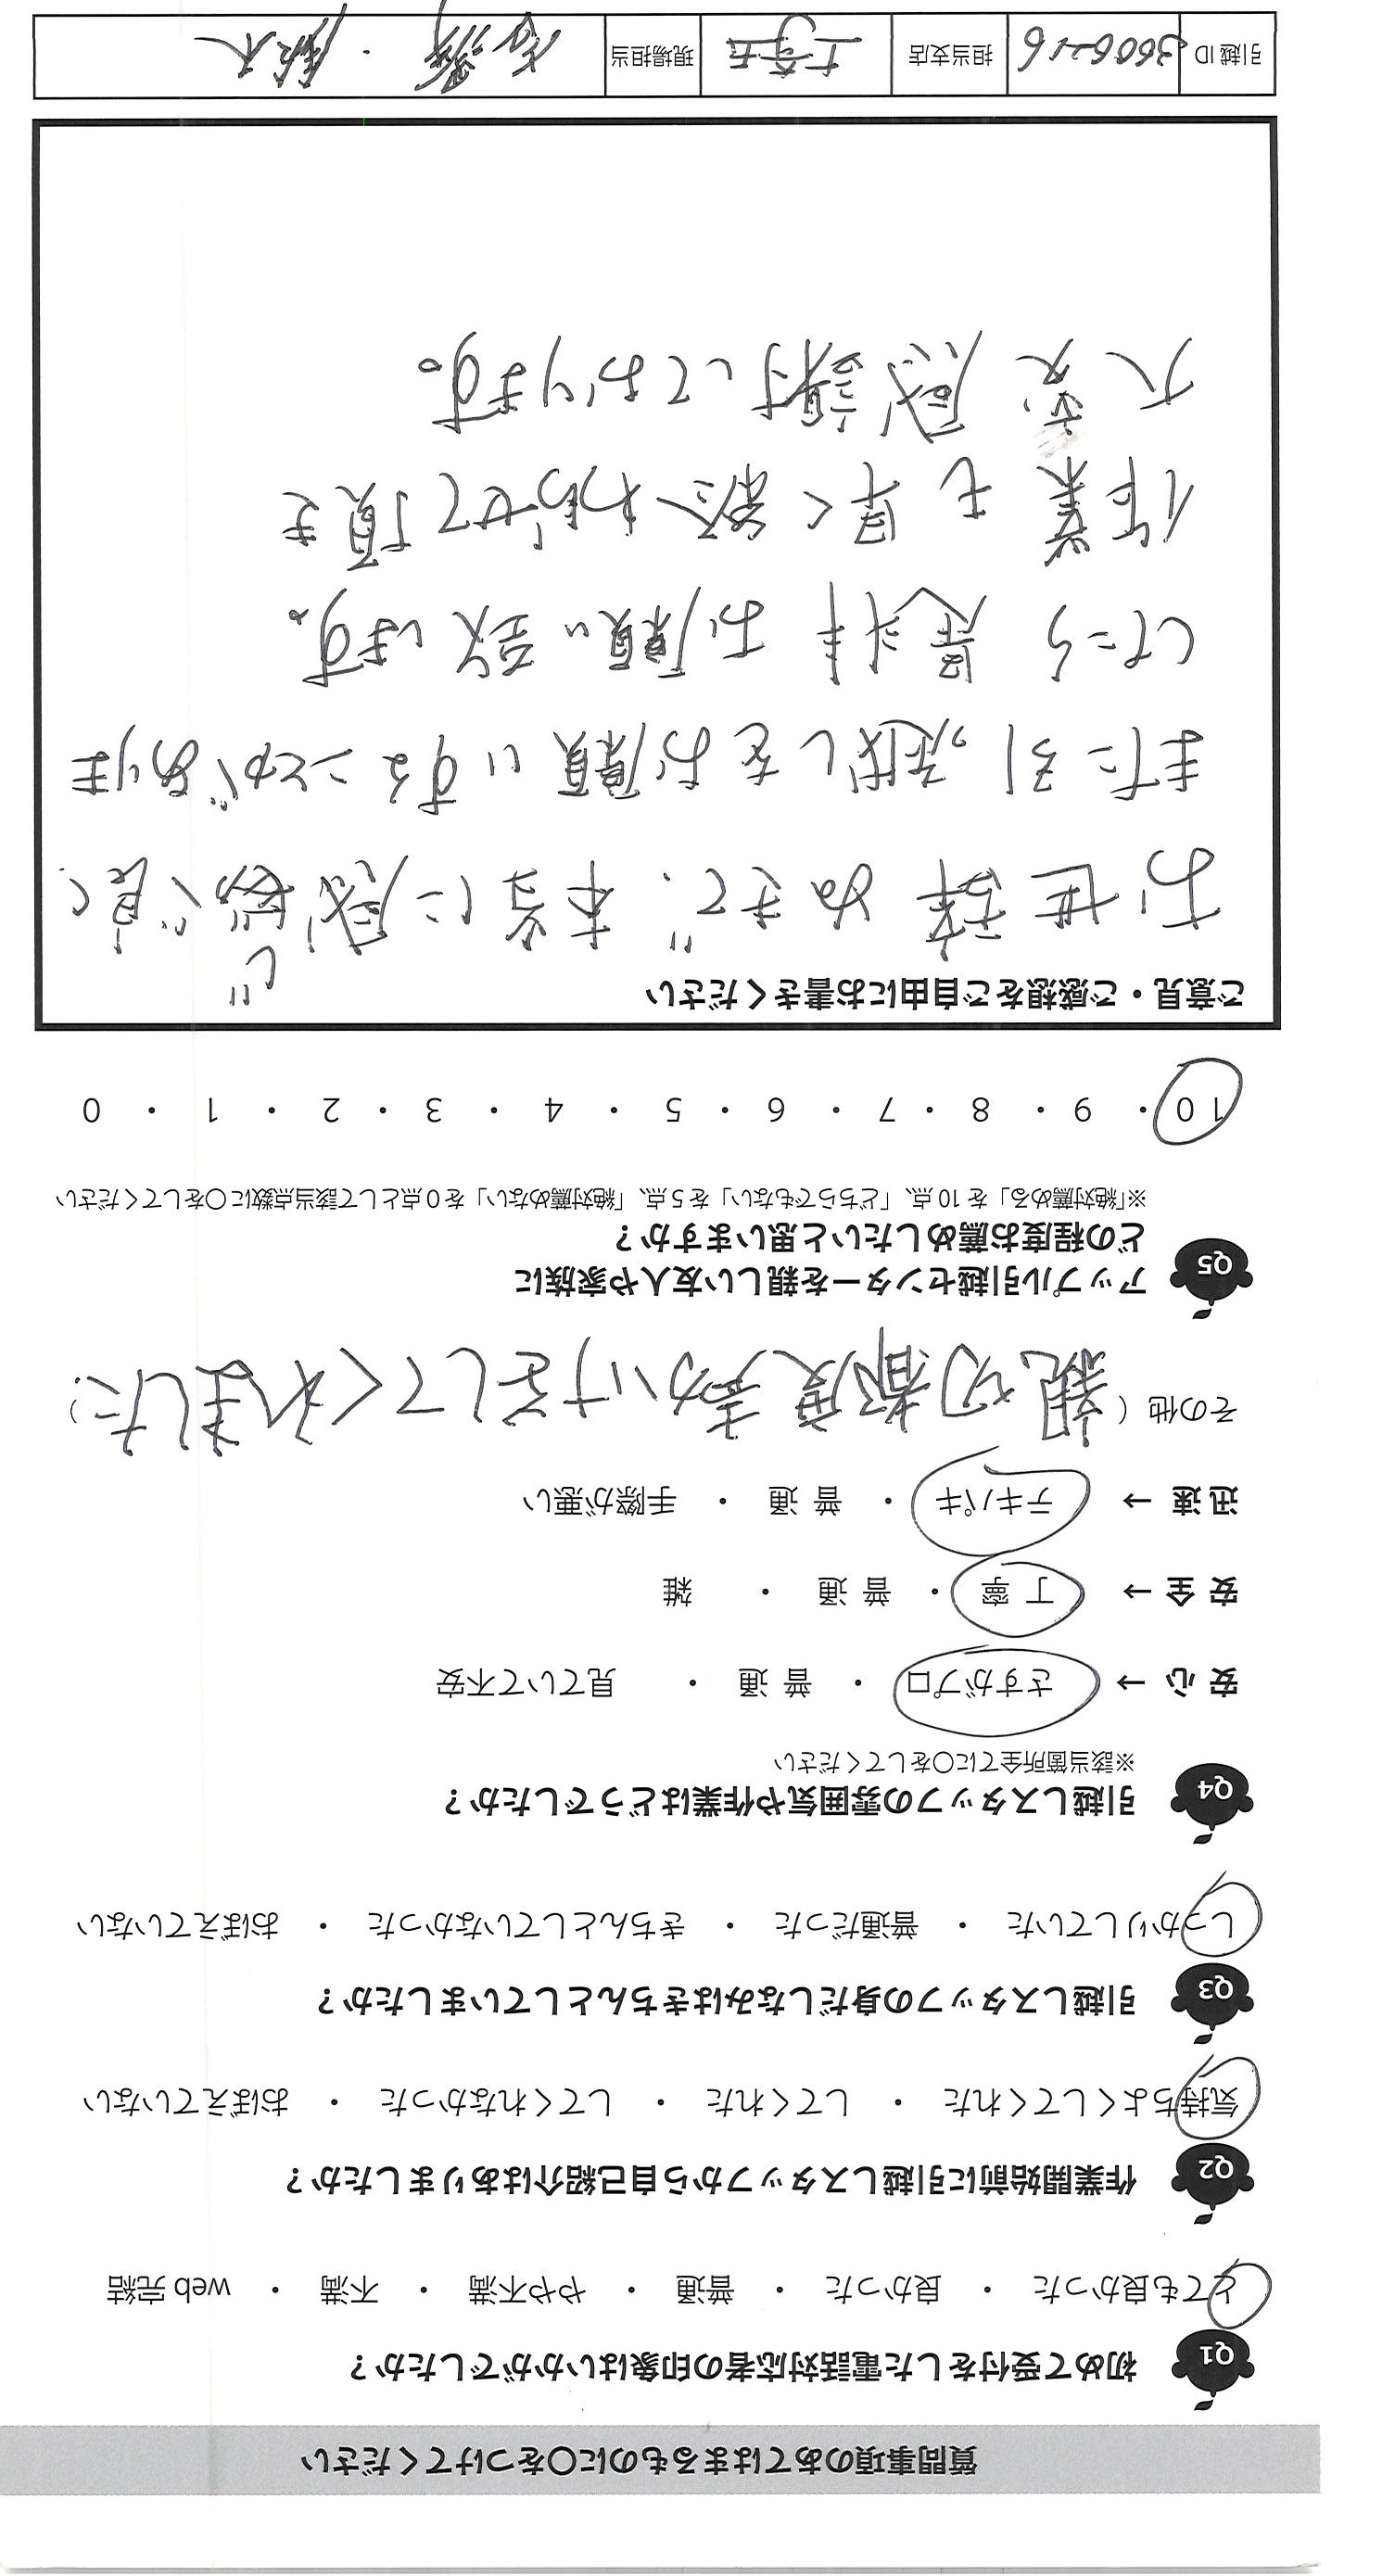 質問事項のあてはまるものに〇をつけてください
Q1 初めて受付をした電話対応者の印象はいかがでしたか?
とても良かった ・ 良かった ・ 普通 ・ やや不満 ・ 不満 ・ web 完結
Q2 作業開始前に引越しスタッフから自己紹介はありましたか?
気持ちよくしてくれた ・ してくれた ・ してくれなかった ・ おぼえていない
Q3 引越しスタッフの身だしなみはきちんとしていましたか?
しっかりしていた ・ 普通だった ・ きちんとしていなかった ・ おぼえていない
Q4 引越しスタッフの雰囲気や作業はどうでしたか?
※該当箇所全てに〇をしてください
安心 → さすがプロ ・ 普通 ・ 見ていて不安
安全 → 丁寧 ・ 普通 ・ 雑
迅速 → テキパキ ・ 普通 ・ 手際が悪い
その他 ( 親切都度声かけをしてくれました。)
Q5 アップル引越センターを親しい友人や家族に
どの程度お薦めしたいと思いますか?
※「絶対薦める」を10点、「どちらでもない」を5点、「絶対薦めない」を0点として該当点数に〇をしてください
10 ・ 9 ・ 8 ・ 7 ・ 6 ・ 5 ・ 4 ・ 3 ・ 2 ・ 1 ・ 0
ご意見・ご感想をご自由にお書きください
お世辞ぬきで、本当に感じが良く、
また引っ越しをお願いすることがありま
したら是非お願い致します。
作業も早く終わらせて頂き
大変感謝しております。
引越ID 3606216 担当支店 現場担当 ・鈴木